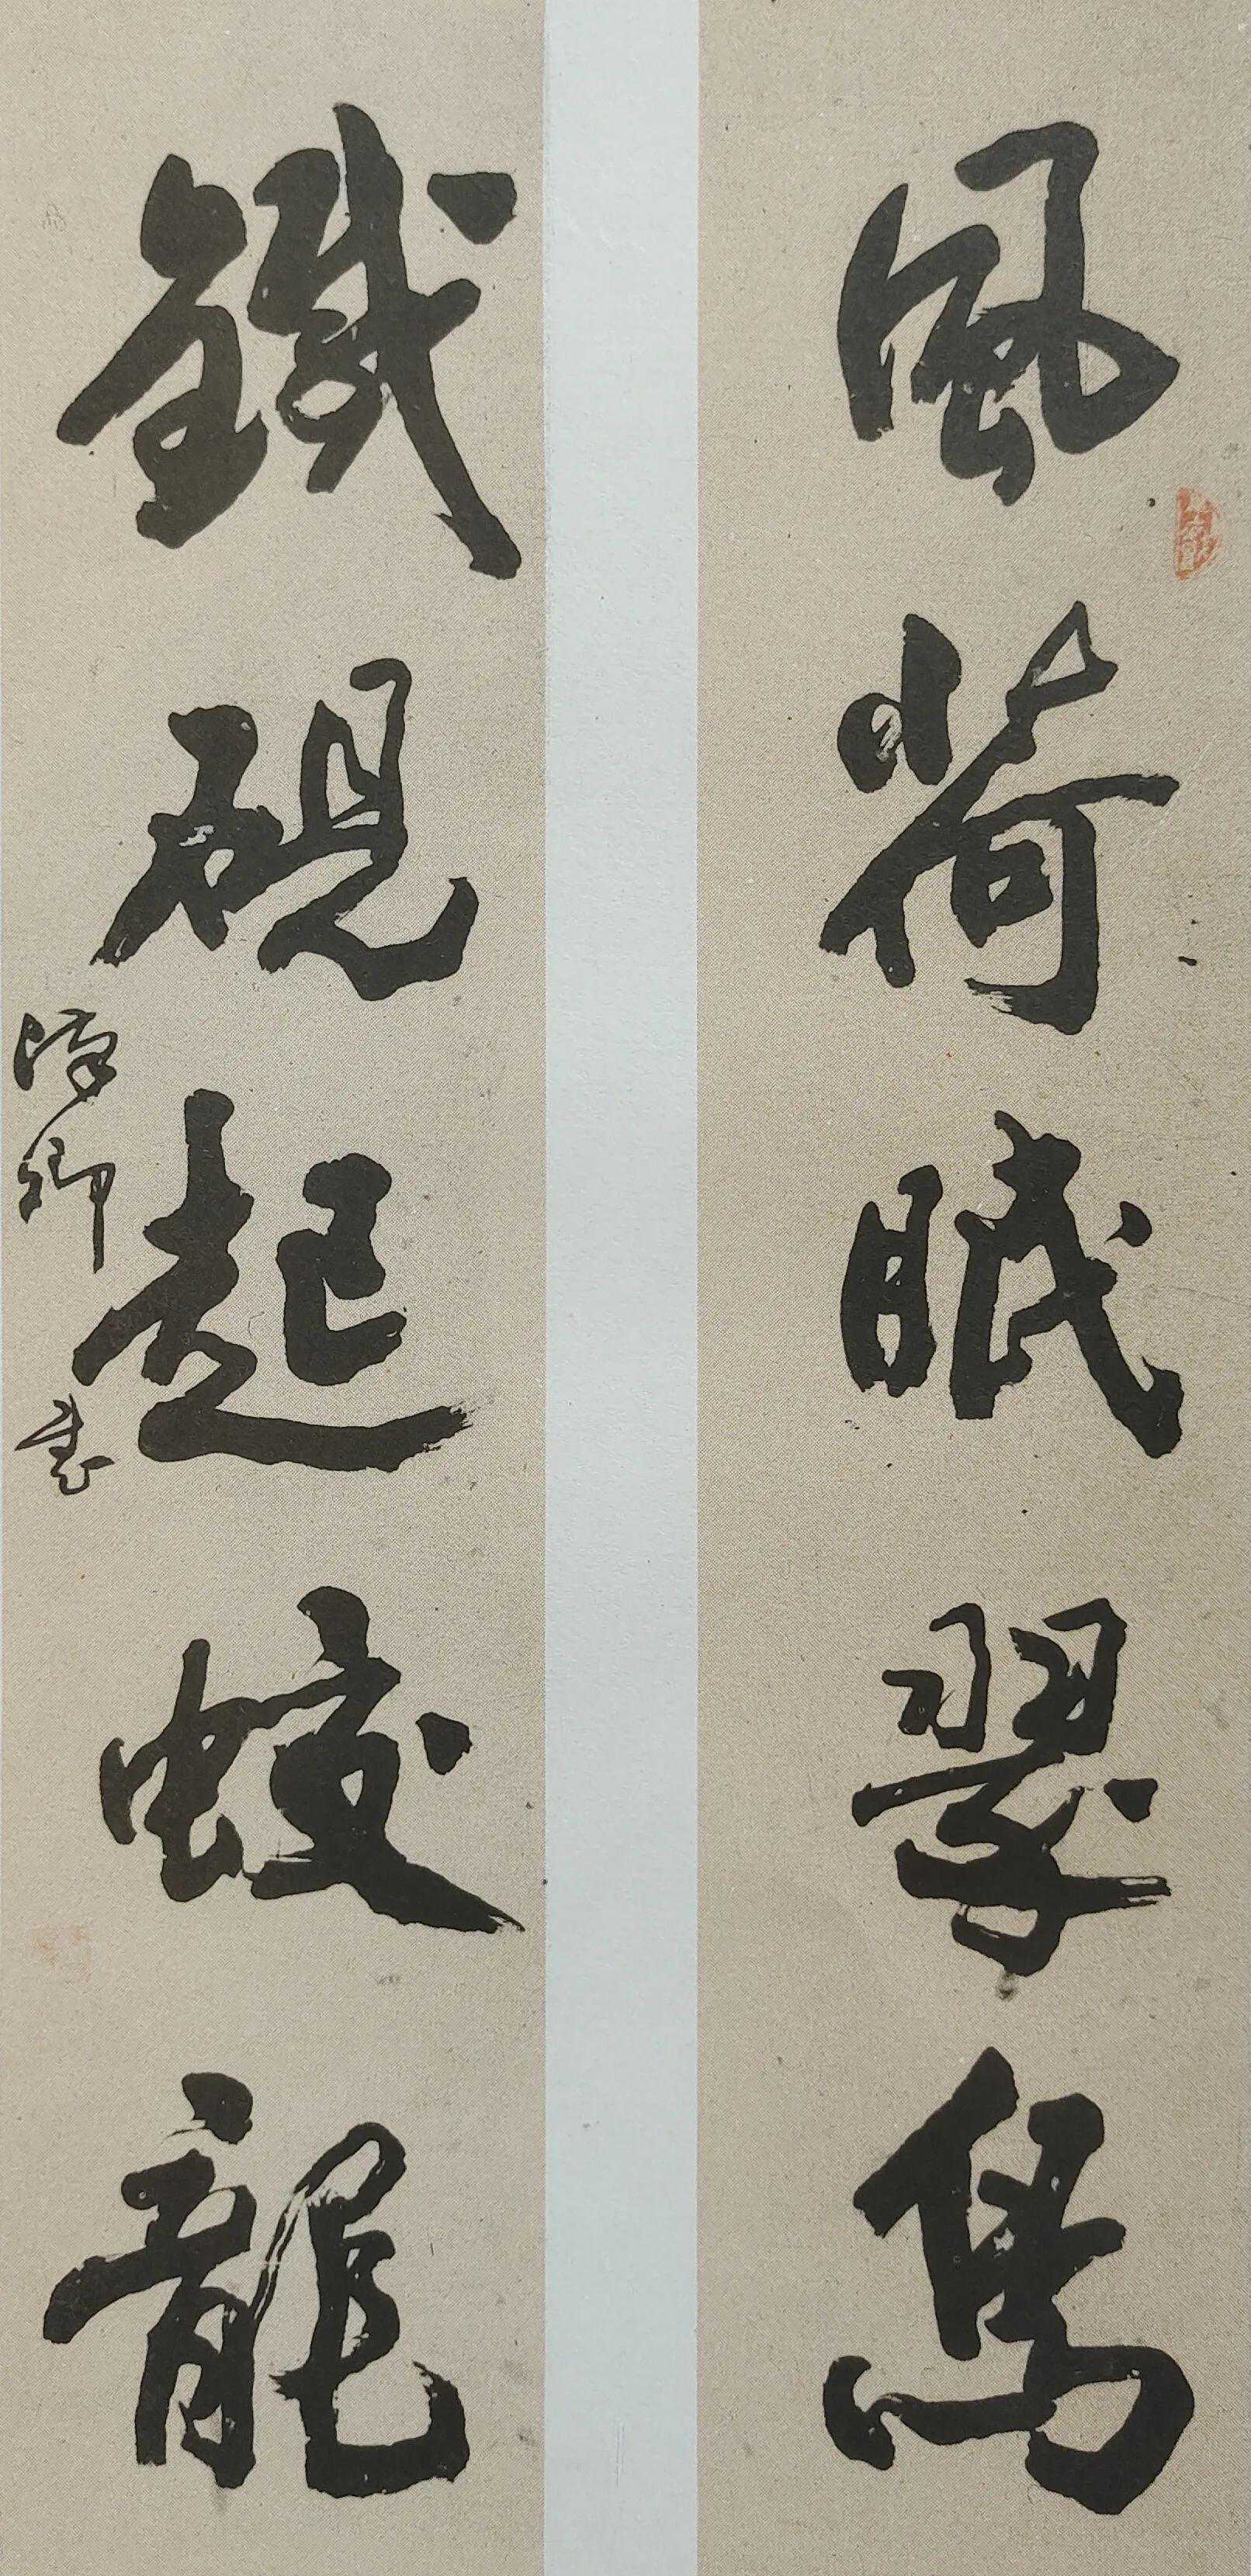 風荷眠翠鳥
鐵硯起蛟龍
海卿 書